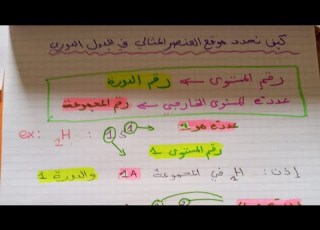 كيف نحدد موقع العنصر المثالي في جدول الدوري
رقم المستوى ← رقم الدورة
عدد e⁻ المستوى الخارجي ← رقم المجموعة
ex: ₁H : 1S¹ عدد e⁻ هو 1
رقم المستوى 1
إذن : ₁H في المجموعة 1A والدورة 1